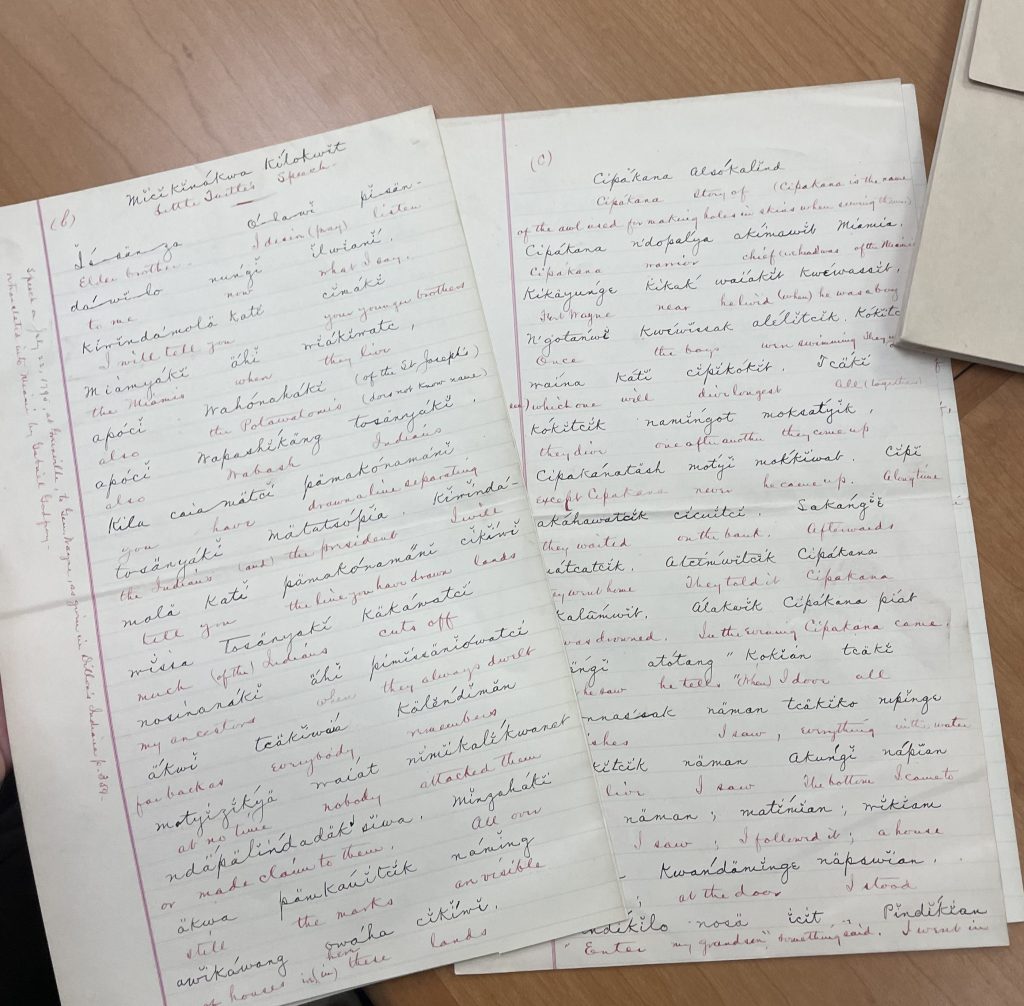 (b)
Mĭcĭ kĭnákwa Kílokwĭt
Little Turtle's Speech
Ĭs-sän-za O-la-wĭ pĭ-sän-
Elder brother. I desire (pray) listen
dá-wĭ-lo nungĭ ĭlwĭanĭ.
to me now what I say.
Kĭwĭndámolä katĭ cĭmäkĭ
I will tell you your younger brothers
Mĭämyákĭ ähĭ wĭákĭwatc,
the Miamis when they live
apócĭ wahónahákĭ (of the St. Joseph's)
also the Potawatomis (does not know name)
apócĭ wapashĭkäng tosänyákĭ,
also Wabash Indians
Kĭla caia mätcĭ pämakónamánĭ
you have drawn a line separating
tosänyákĭ mätatsópĭa. Kĭwĭndá-
the Indians (and) the president I will
molä katĭ pämakónamänĭ cĭkĭwĭ
tell you the line you have drawn lands
mĭssa Tosänyakĭ käkáwatcĭ
much (of the) Indians cuts off
nosĭnanákĭ ähĭ pĭmĭssänĭówatcĭ
my ancestors when they always dwelt
äkwĭ tcäkĭwaá käléndĭmän
far back as everybody remembers
motyĭzĭkĭyä waiát nĭmĭkalĭkwanet
at no time nobody attacked them
ndäpälĭndádäkˈsĭwa. Mĭnzahákĭ
or made claim to them. All over
äkwa pämkaúĭtcĭk nämĭng
still the marks are visible
awĭkáwang owáha cĭkĭwĭ.
of houses in (on) these here lands
Speech of July 22, 1795, at Greenville to Gen. Wayne, as given in Dillon's Indiana p. 369.
retranslated into Miami by Gabriel Godfroy.
(c)
Cĭpákana Alsókalĭnd
Cipakana Story of (Cipakana is the name
of the awl used for making holes in skins when sewing them)
Cĭpákana n'dopalya akĭmawĭt Mĭamĭa.
Cipakana warrior chief (headman) of the Miamis
Kĭkäyunge kĭkak waĭákĭt kwewassĭt,
Fort Wayne near he lived (when) he was a boy
N'gotänwĭ kwewĭssak alélĭtcĭk. Kókĭtc
Once the boys were swimming They
waĭna katĭ cĭpĭkókĭt. Tcäkĭ
which one will dive longest All (together)
kókĭtcĭk namĭngot moksatyĭk,
they dive one after another they come up
Cĭpakánatäsh motyĭ mokkĭwat. Cĭpĭ
except Cipakana never he came up. A long time
akáhawatcĭk cĭcuĭtcĭ. Sakángĭĕ
they waited on the bank. Afterwards
átcatcĭk. Alĕĭmwĭtcĭk Cĭpákana
ey went home They told it Cipakana
kalämwĭt. Álakwĭk Cĭpákana pĭat
was drowned. In the evening Cipakana came.
ĕngĭ atótang "Kokĭan tcäkĭ
he saw he tells "(When) I dove all
nnassak näman tcäkĭko nĭpĭnge
ishes I saw, everything in the water
kĭtcĭk näman Akungĭ nápĭan
live I saw The bottom I came to
näman; matĭmĭan; wĭkĭam
I saw; I followed it; a house
Kwándämĭnge näpswĭan.
at the door I stood
ndĭkĭlo nosä ĭcĭt Pĭndĭkĭan
"Enter my grandson," something said. I went in